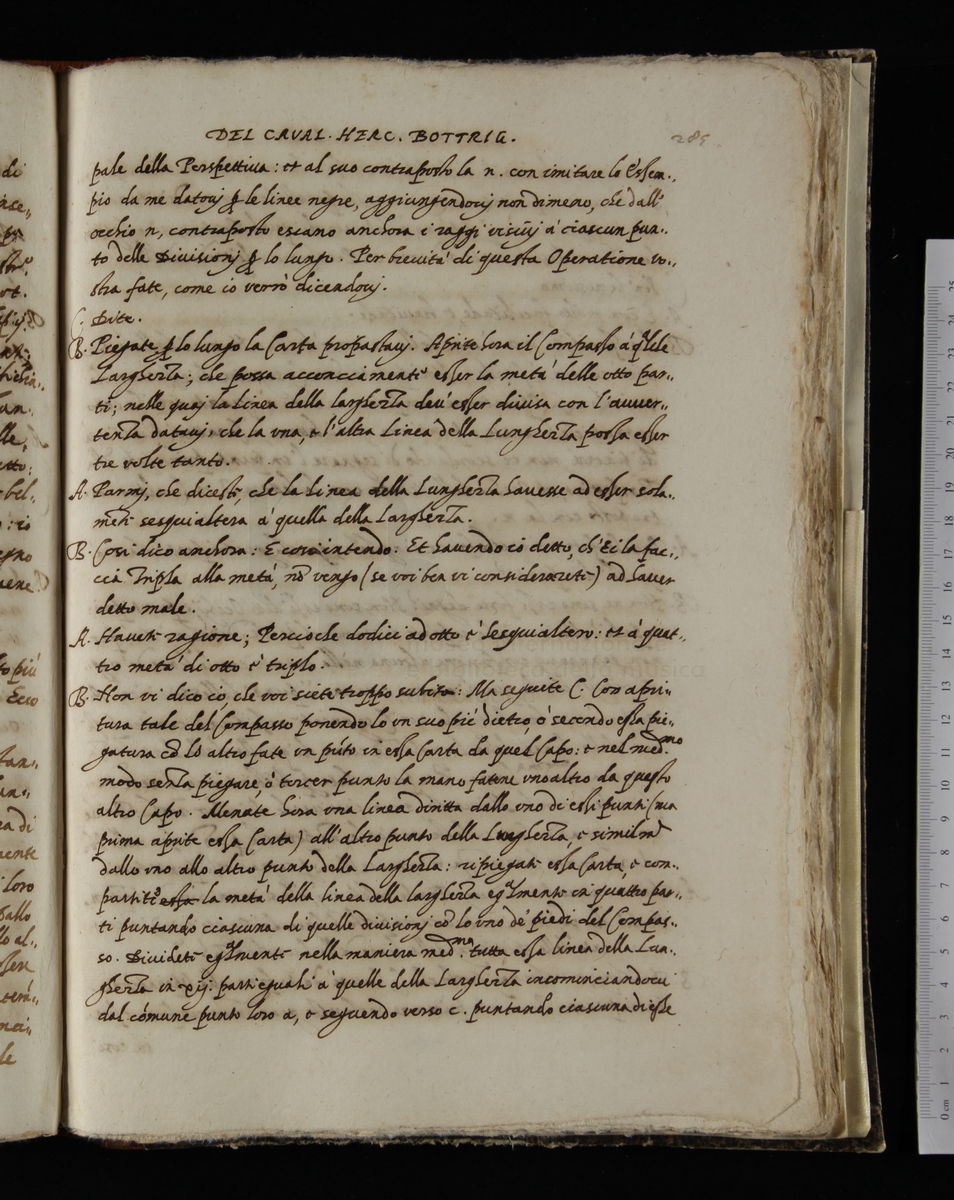 DEL CAVAL. HERC. BOTTRIG. 285
pale della Perspettiva: et al suo contraposto la n. con imitare lo Essem..
pio da me datovj ꝑ le linee negre, aggiungendovj non dimeno, che dall'
occhio n, contraposto escano anchora i raggi visivj à ciascun pun..
to delle Divisionj ꝑ lo lungo. Per brevità di questa Operatione vo..
stra fate, come io verrò dicendovj.
C. Dite.
B. Piegate ꝑ lo lungo la Carta propostavj. Aprite hora il Compasso à
Larghezza; che possa acconciamente esser la metà delle otto par..
ti; nelle quaj la Linea della larghezza dev' esser divisa con l'avver..
tenza datavj, che la una, e l'altra Linea della Lunghezza possa esser
tre volte tanto.
A. Parmj, che diceste, che la Linea della Lunghezza havesse ad esser sola..
mente sesquialtera à quella della Larghezza.
B. Cosi dico anchora: E cosi intendo. Et havendo io detto, ch'Ei la fac..
cia Tripla alla metà, nō vengo (se voi ben vi considerarete) ad haver
detto male.
A. Havete ragione; Percioche dodici ad otto è Sesquialtero: et à quat..
tro metà di otto è triplo.
B. Hon vi dico io che voi siete troppo subito: Ma seguite C. Con apri..
tura tale del Compasso ponendo lo un suo piè dietro, ò secondo essa pie..
gatura cō lo altro fate un pūto in essa Carta da quel Capo: e nel med.mo
modo senza piegare, ò torcer punto la mano fatene uno altro da questo
altro Capo. Menate hora una linea diritta dallo uno di essi punti (ma
prima aprite essa Carta) all' altro punto della Lunghezza, e similm.te
dallo uno allo altro punto della Larghezza: ripiegate essa Carta, e com..
partite essa la metà della linea della larghezza egualmente in quattro par..
ti puntando ciascuna di quelle divisionj cō lo uno de' piedi del Compas..
so. Dividete egualmente nella maniera med.ma tutta essa linea della Lun..
ghezza in xij. parti eguali à quelle della Larghezza incominciandovi
dal cōmune punto loro a, e seguendo verso c. puntando ciascuna di esse